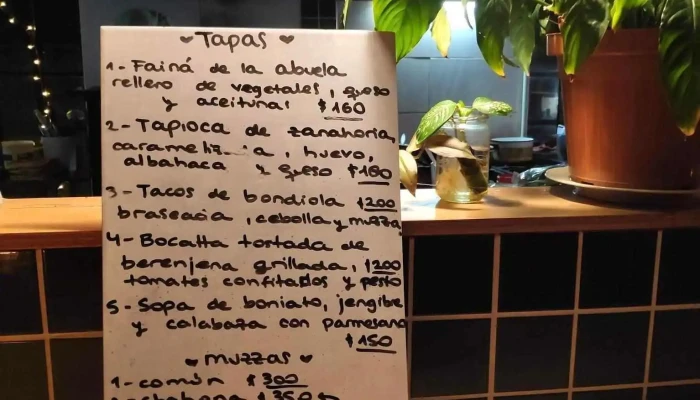 ♥ Tapas ♥
1- Fainá de la abuela
relleno de vegetales, queso
y aceitunas $160
2- Tapioca de zanahoria
, huevo,
albahaca y queso $160
3- Tacos de bondiola $200
braseada, cebolla y muzza
4- Bocatta tostada de
berenjena grillada, $200
tomates confitados y pesto
5- Sopa de boniato, jengibre
y calabaza con parmesano
$150
♥ muzzas ♥
1- común $300
$350